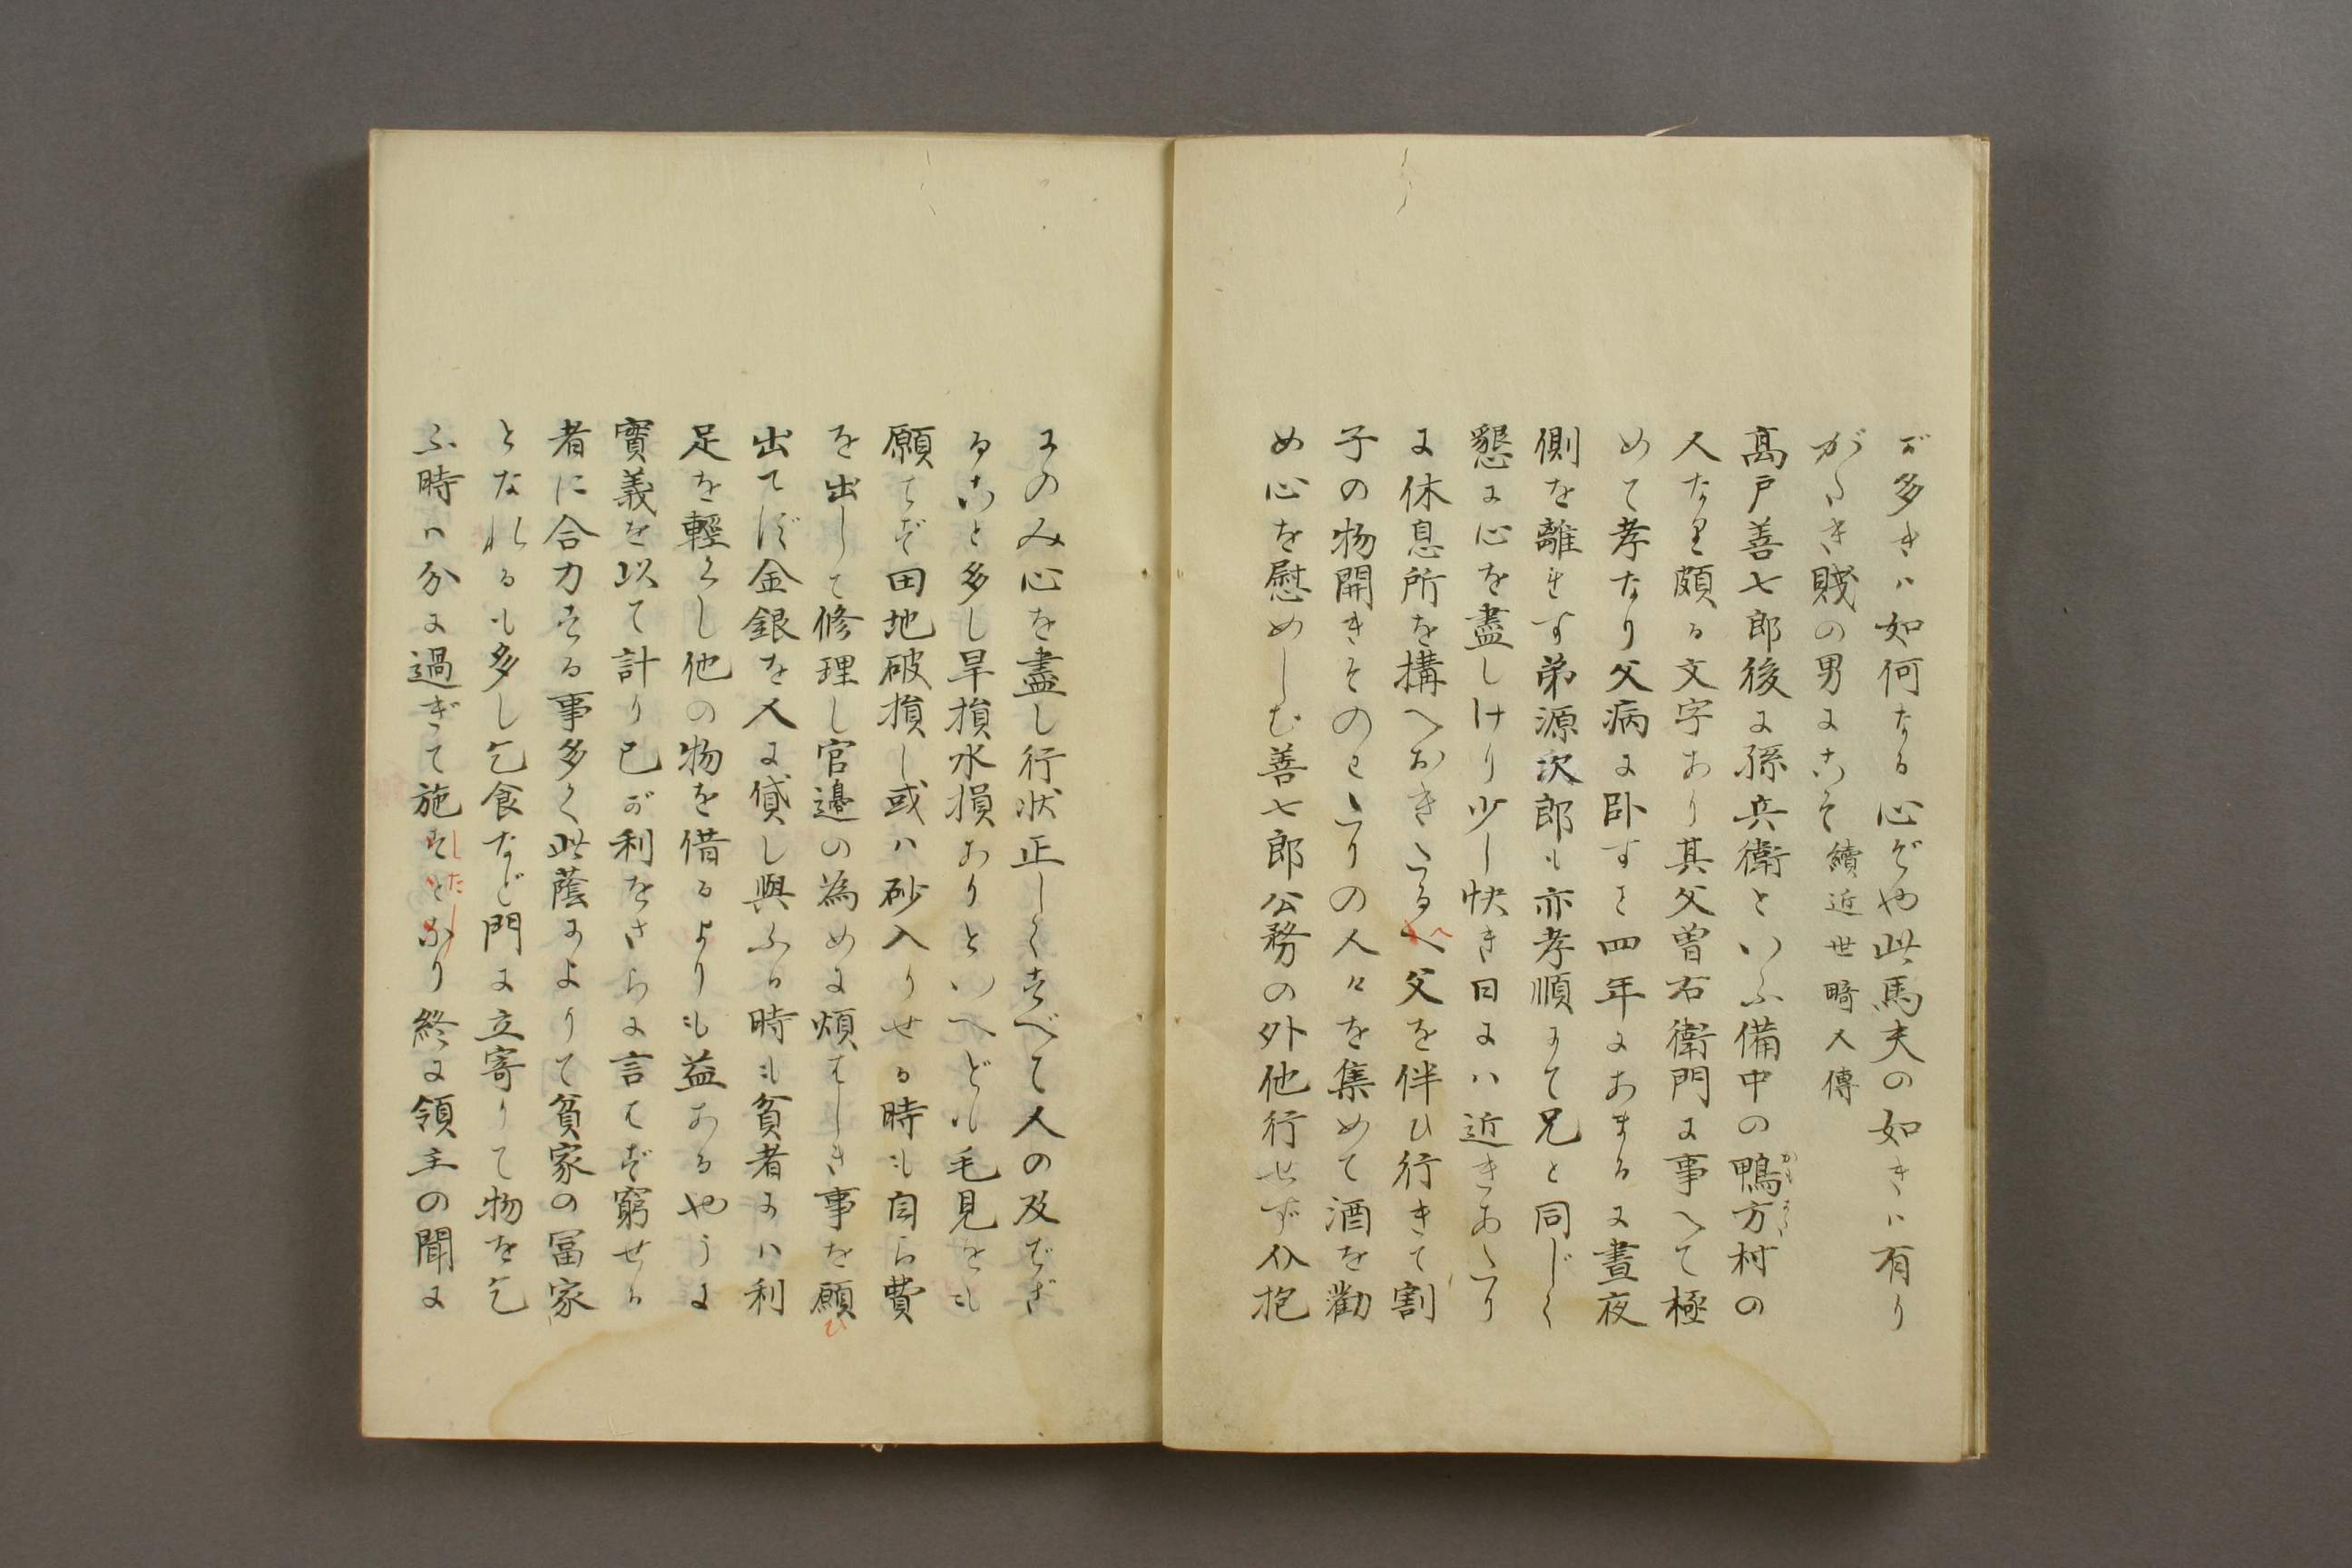 ぶ多きハ如何なる心ぞや此馬夫の如きハ有り
がたき賤の男にこそ 續近世畸人傳
高戸善七郎後に孫兵衛といふ備中の鴨方村の
人なり頗る文字あり其父曽右衛門に事へて極
めて孝なり父病に卧すこと四年にあまるに晝夜
側を離れず弟源次郎も亦孝順にて兄と同じく
懇に心を盡しけり少し快き日にハ近きあたり
に休息所を構へおきたるへ父を伴ひ行きて割
子の物開きそのわたりの人々を集めて酒を勸
め心を慰めしむ善七郎公務の外他行せず介抱
にのみ心を盡し行状正しくすべて人の及ばざ
ること多し旱損水損ありといへども毛見をも
願はず田地破損し或ハ砂入りせる時も自ら費
を出して修理し官邊の為めに煩はしき事を願ひ
出でず金銀を人に貸し與ふる時も貧者にハ利
足を輕くし他の物を借るよりも益あるやうに
實義を以て計り己が利をさらに言はず窮せる
者に合力する事多く此蔭によりて貧家の冨家
となれるも多し乞食など門に立寄りて物を乞
ふ時ハ分に過ぎて施したり終に領主の聞に